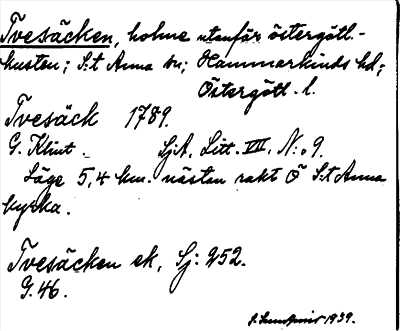 Tvesäcken, holme utanför östergötl.-
kusten; S:t Anna sn; Hammarkinds hd;
Östergötl. l.
Tvesäck 1789.
G. Klint. SjA, Litt. VIII, N:o 9.
Läge 5,4 km. nästan rakt Ö S:t Anna
kyrka.
Tvesäcken ek, Sj: 252.
G. 46.
1939.